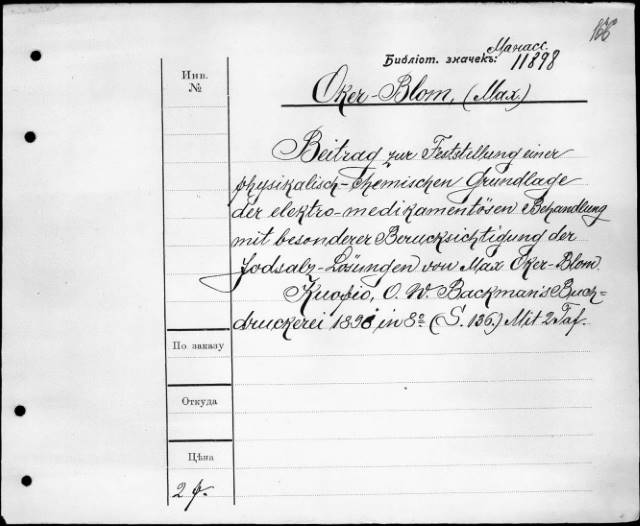 166
Манасс.
Библіот. значекъ: 11898
Инв.
№
Oker-Blom, (Max.)
Beitrag zur Feststellung einer
physikalisch-chemischen Grundlage
der elektro-medikamentösen Behandlung
mit besonderer Berucksichtigung der
Jodsalz-Lösungen von Max Oker-Blom.
Kuopio, O. W. Backman's Buch=
druckerei in 8º (S. 136.) Mit 2 Taf.
По заказу
Откуда
Цѣна
2 р.